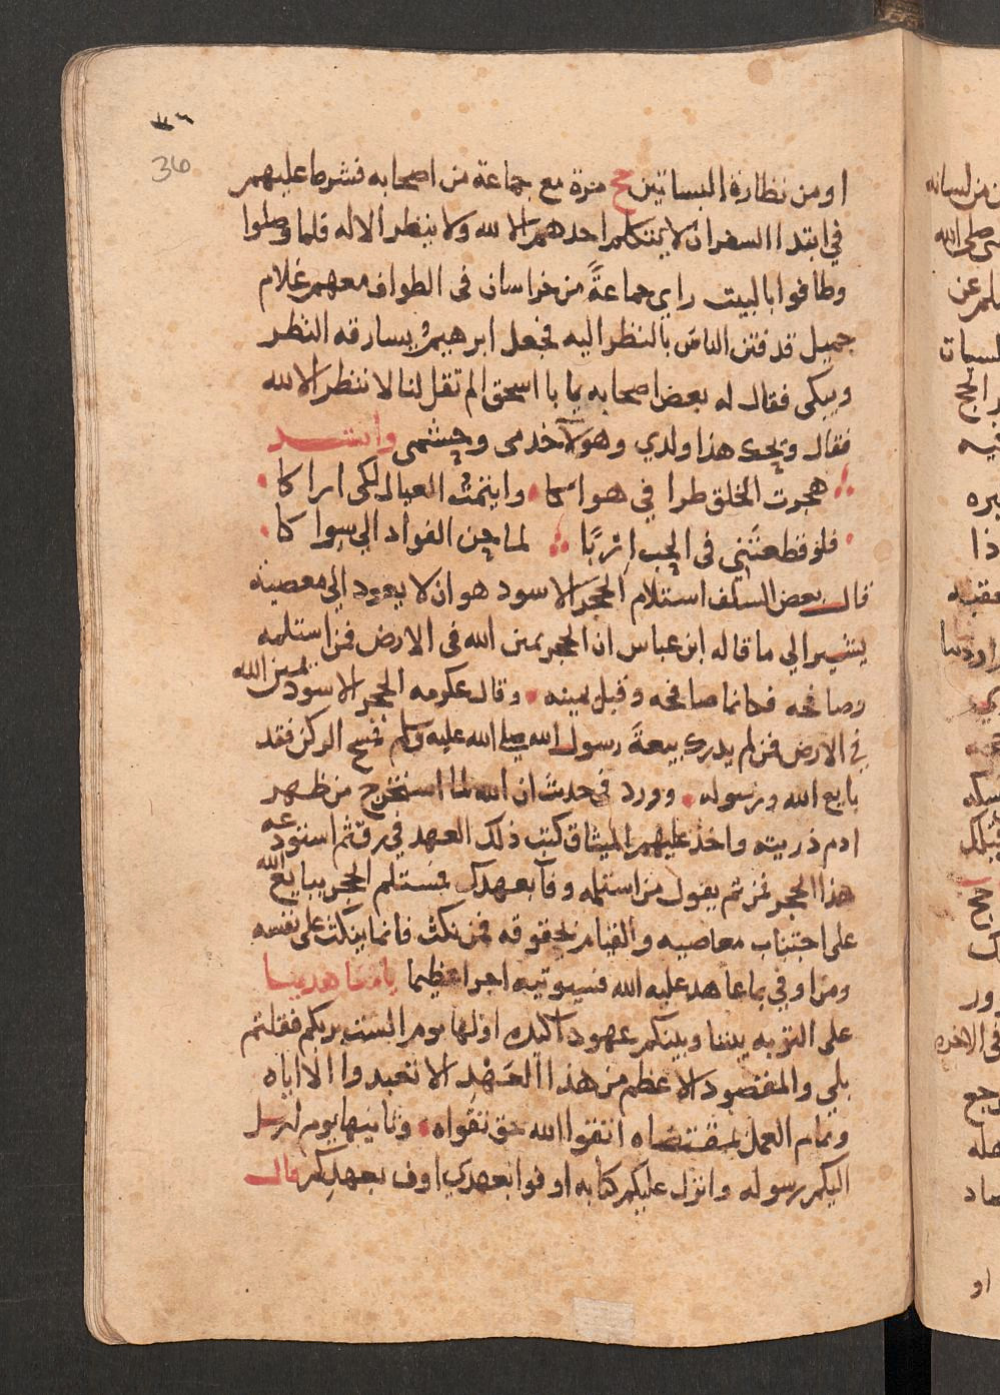 ٣٦
36
او من نظارة البساتين حج مرة مع جماعة من اصحابه فشرط عليهم
في ابتدا السفر ان لا يتكلم احدهم الا لله ولا ينظر الا له فلما وصلوا
وطافوا بالبيت راي جماعةً من خراسان في الطواف معهم غلام
جميل قد فتن الناس بالنظر اليه فجعل ابرهيم يسارقه النظر
ويبكي فقال له بعض اصحابه يا با اسحق الم تقل لنا لا ننظر الا لله
فقال ويحك هذا ولدي وهولآ خدمى وحشمى وانشد
هجرت الخلق طرا في هواكا وايتمت العيال لكي اراكا
فلو قطعتني في الحب اربًا لما حن الفواد الي سواكا
قال بعض السلف استلام الحجر الاسود هو ان لا يعود الي معصيته
يشير الي ما قاله ابن عباس ان الحجر يمين الله في الارض فمن استلمه
وصافحه فكانما صافحه وقبل يمينه وقال عكرمه الحجر الاسود يمين الله
في الارض فمن لم يدرك بيعة رسول الله صلي الله عليه وسلم فمسح الركن فقد
بايع الله ورسوله وورد في حديث ان الله لما استخرج من ظهر
ادم ذريته واخذ عليهم الميثاق كتب ذلك العهد في رق ثم استودعه
هذا الحجر فمن ثم يقول من استلمه وفآ بعهدك فمستلم الحجر يبايع الله
على اجتناب معاصيه والقيام بحقوقه فمن نكث فانما ينكث على نفسه
ومن اوفي بما عاهد عليه الله فسيوتيه اجرا عظيما يا من عاهدنا
على التوبه بيننا وبينكم عهود اكيده اولها يوم الست بربكم فقلتم
بلى والمقصود الاعظم من هذا العهد الا تعبدوا الا اياه
وتمام العمل بمقتضاه اتقوا الله حق تقواه وثانيها يوم ارسل
اليكم رسوله وانزل عليكم كتابه اوفوا بعهدي اوف بعهدكم قال